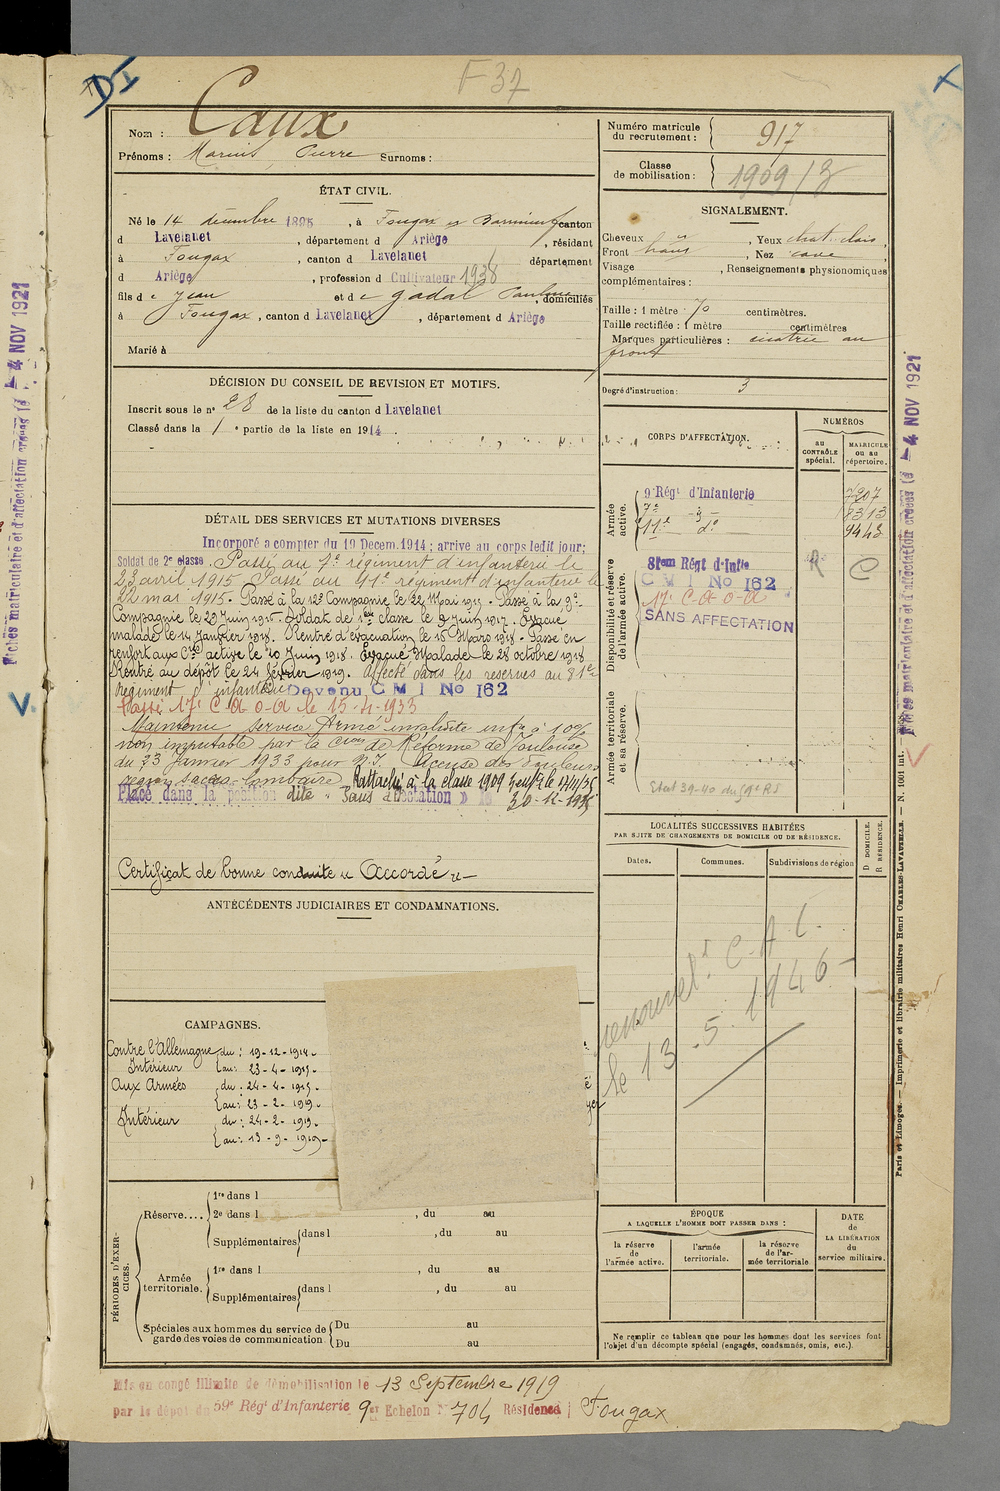 DI
F 37
Nom : Caux
Prénoms : Marius, Pierre Surnoms :
Numéro matricule du recrutement : 917
Classe de mobilisation : 1909/3
ÉTAT CIVIL.
Né le 14 décembre 1895, à Fougax et Barrineuf canton
d Lavelanet, département d Ariège, résidant
à Fougax, canton d Lavelanet département
d Ariège, profession d Cultivateur 1938
fils d e Jean et d e gadal Pauline, domiciliés
à Fougax, canton d Lavelanet, département d Ariège
Marié à
SIGNALEMENT.
Cheveux , Yeux chat. clairs,
Front haut , Nez cave
Visage , Renseignements physionomiques
complémentaires :
Taille : 1 mètre 70 centimètres.
Taille rectifiée : 1 mètre centimètres
Marques particulières : cicatrice au
front
Degré d'instruction : 3
DÉCISION DU CONSEIL DE REVISION ET MOTIFS.
Inscrit sous le n° 28 de la liste du canton d Lavelanet
Classé dans la 1e partie de la liste en 1914
CORPS D'AFFECTATION.
NUMÉROS
au CONTRÔLE spécial.
MATRICULE ou au répertoire.
Armée active.
9e Régt d'Infanterie 7207
7e -d- 8313
11e do 9443
Disponibilité et réserve de l'armée active.
81em Régt d'Infie
C M I No 162
17e C-O-A
SANS AFFECTATION
Armée territoriale et sa réserve.
Etat 39-40 du 59e RS
DÉTAIL DES SERVICES ET MUTATIONS DIVERSES
Incorporé a compter du 19 Decem. 1914 ; arrive au corps ledit jour ;
Soldat de 2e classe Passé au 7e régiment d'infanterie le
23 avril 1915 Passé au 11e régiment d'infanterie le
22 mai 1915. Passé à la 12e Compagnie le 22 Mai 1915. Passé à la 9e
Compagnie le 29 Juin 1915. Soldat de 1ère classe le 9 Juin 1917. Evacué
malade le 14 Janvier 1918. Rentré d'évacuation le 15 Mars 1918. Passe en
renfort aux Cies active le 20 Juin 1918. Evacué Malade le 28 octobre 1918
Rentré au dépôt le 24 février 1919. Affecté dans les reserves au 81e
régiment d'infanterie Devenu C M I No 162
Passé 17e C O A le 15-4-1933
Maintenu service Armé invalidité infre à 10%
non imputable par la Cion de Réforme de Toulouse
du 23 Janvier 1933 pour R.I. Accuse des douleurs
region sacro-lombaire Rattaché à la classe 1909
Placé dans la position dite « Sans affectation »
Certificat de bonne conduite « Accordé »
ANTÉCÉDENTS JUDICIAIRES ET CONDAMNATIONS.
LOCALITÉS SUCCESSIVES HABITÉES
PAR SUITE DE CHANGEMENTS DE DOMICILE OU DE RÉSIDENCE.
Dates.
Communes.
Subdivisions de région
D DOMICILE.
R RÉSIDENCE.
renouvelt C.A.C.
le 13-5-1946
CAMPAGNES.
Contre l'Allemagne du : 19-12-1914
Intérieur au : 23-4-1915
Aux Armées du : 24-4-1915
au : 23-2-1919
Intérieur du : 24-2-1919
au : 13-9-1919
PÉRIODES D'EXERCICES.
Réserve....
1re dans l
2e dans l , du au
Supplémentaires dans l , du au
Armée territoriale.
1re dans l , du au
Supplémentaires dans l , du au
Spéciales aux hommes du service de garde des voies de communication
Du au
Du au
ÉPOQUE
A LAQUELLE L'HOMME DOIT PASSER DANS :
la réserve de l'armée active.
l'armée territoriale.
la réserve de l'armée territoriale
DATE de LA LIBÉRATION du service militaire.
Ne remplir ce tableau que pour les hommes dont les services font
l'objet d'un décompte spécial (engagés, condamnés, omis, etc.).
Mis en congé illimité de démobilisation le 13 Septembre 1919
par le dépôt du 59e Régt d'Infanterie 9er Echelon N° 704 Résidence Fougax
Fiches matriculaire et d'affectation créées le 4 NOV 1921
Fiches matriculaire et d'affectation créées le 4 NOV 1921
Paris et Limoges. — Imprimerie et librairie militaires Henri CHARLES-LAVAUZELLE. — N. 1001 int.